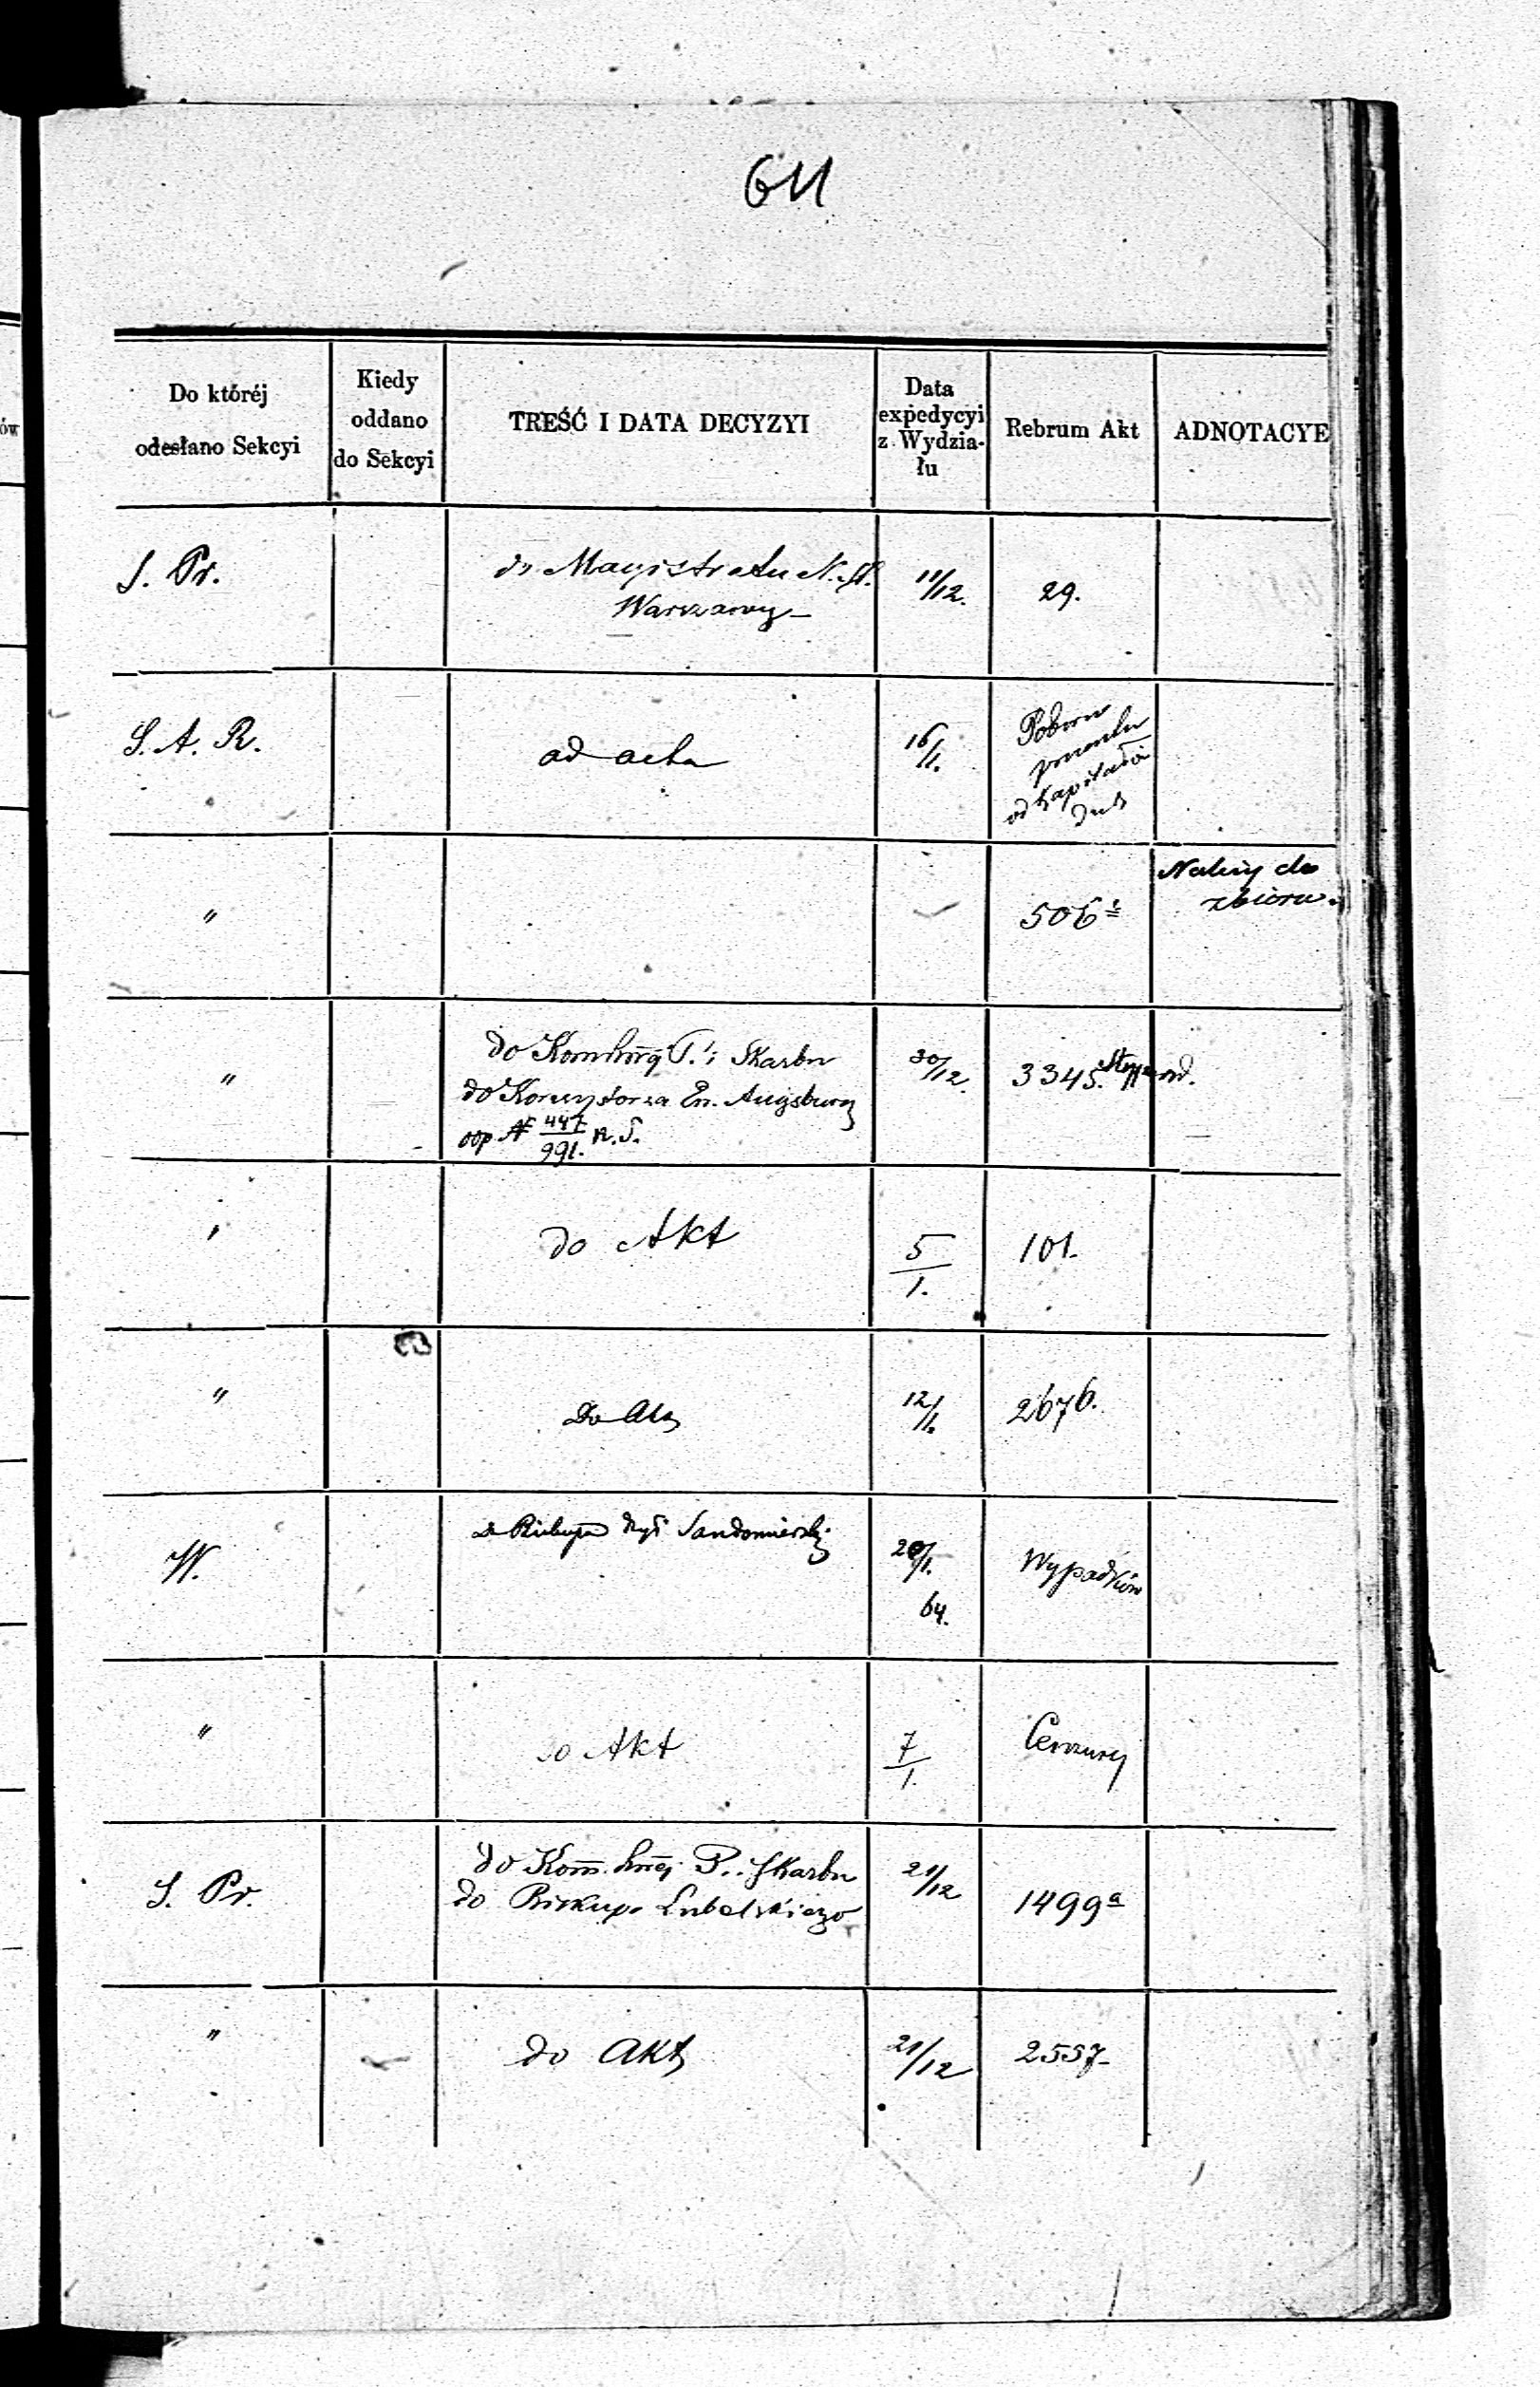 611
Do któréj
odesłano Sekcyi
Kiedy
oddano
do Sekcyi
TREŚĆ I DATA DECYZYI
Data
expedycyi
z Wydzia-
łu
Rebrum Akt
ADNOTACYE
S. Pr.
do Magistratu
Warszawy
11/12.
29.
S. A. R.
ad acta
16/1.
Poboru
procentu
od kapitałów
"
506
Należy do
zbioru.
"
do Skarbu
do Konsystorza Ew. Augsburg
N 447/991.
30/12.
3345.
"
do Akt
5/1.
101.
"
Do Akt
12/1.
267b.
W.
Biskupa Sandomierskiej
20/1.
64.
Wypadków
"
do Akt
7/1.
Cenzury
S. Pr.
do Komm. P. Skarbu
do Biskupa Lubelskiego
21/12
1499a
"
do Akt
21/12
2557